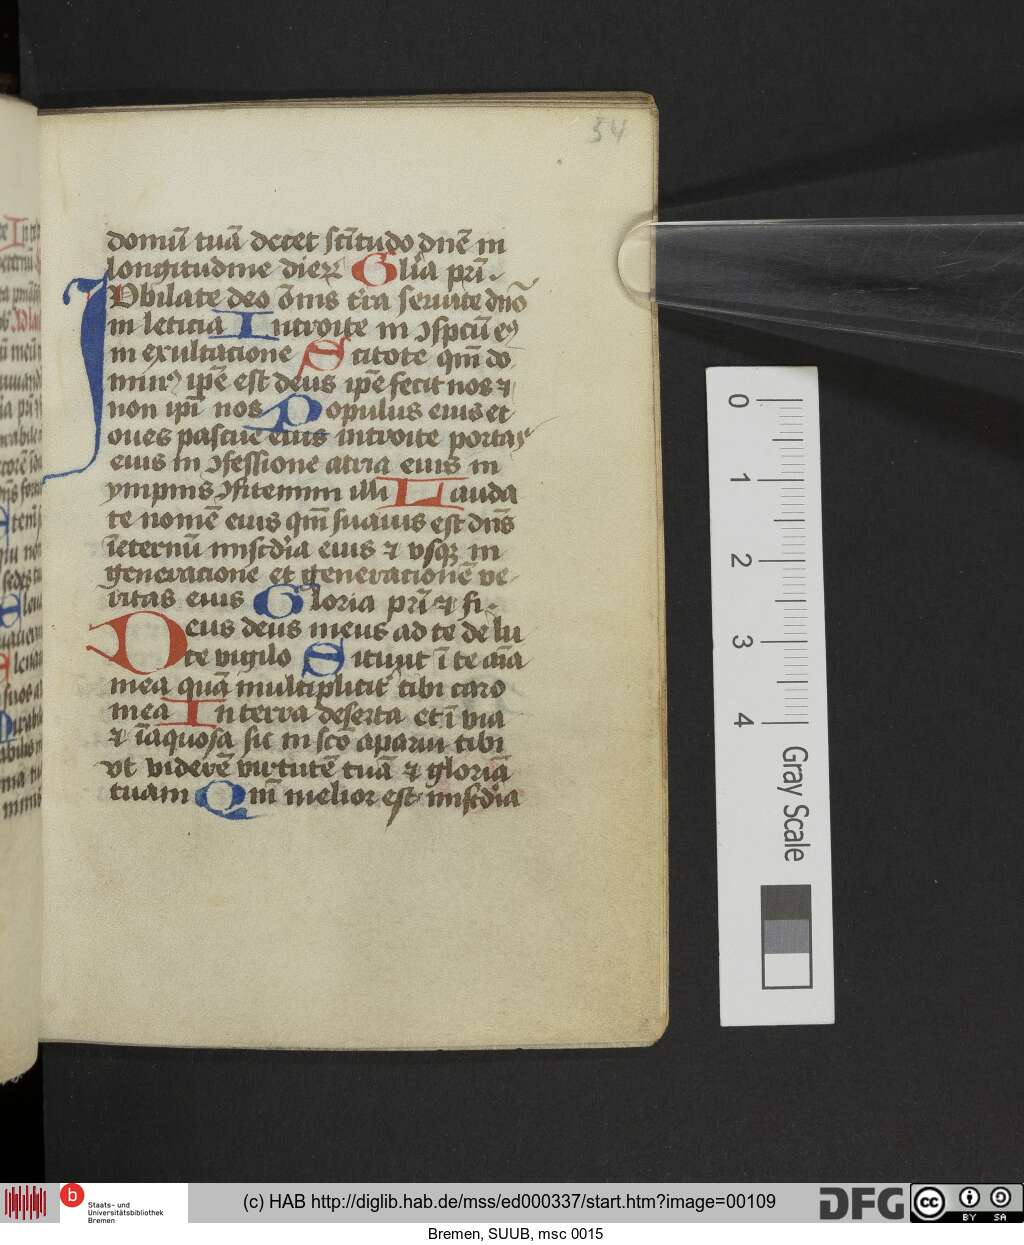 54
domū tuā decet sc̄itudo dn̄e in
longitudine dierꝝ Glīa pr̄i.
IUbilate deo ōm̄s tr̄a seruite dn̄o
in leticia Introite in ↄspc̄u eꝯ
in exultacione Scitote qm̄ do
minꝯ ip̄e est deus ip̄e fecit nos ⁊
non ip̄i nos Populus eius et
oues pascue eius introite portas
eius in ↄfessione atria eius in
ympnis ↄfitemini illi Lauda
te nomē eius qm̄ suauis est dn̄s
īeternū mis̄cdīa eius ⁊ vsqꝫ in
generacione et generationē ve
ritas eius Gloria pr̄i ⁊ fi.
Deus deus meus ad te de lu
te vigilo Sitiuit ī te aīa
mea quā multiplicit̄ tibi caro
mea In terra deserta et ī uia
⁊ īaquosa sic in sc̄o aparui tibi
vt viderē virtutē tuā ⁊ gloriā
tuam Qm̄ melior est mis̄cdīa
0
1
2
3
4
Gray Scale
b Staats- und
Universitätsbibliothek
Bremen
(c) HAB http://diglib.hab.de/mss/ed000337/start.htm?image=00109
DFG
cc BY SA
Bremen, SUUB, msc 0015